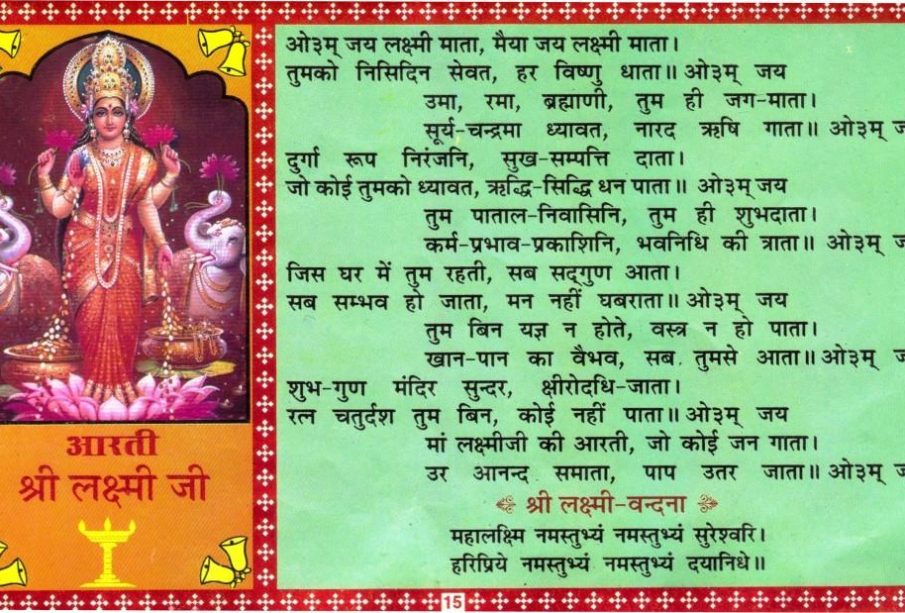 आरती
श्री लक्ष्मी जी
ओ३म् जय लक्ष्मी माता, मैया जय लक्ष्मी माता।
तुमको निसिदिन सेवत, हर विष्णु धाता॥ ओ३म् जय
उमा, रमा, ब्रह्माणी, तुम ही जग-माता।
सूर्य-चन्द्रमा ध्यावत, नारद ऋषि गाता॥ ओ३म्
दुर्गा रूप निरंजनि, सुख-सम्पत्ति दाता।
जो कोई तुमको ध्यावत, ऋद्धि-सिद्धि धन पाता॥ ओ३म् जय
तुम पाताल-निवासिनि, तुम ही शुभदाता।
कर्म-प्रभाव-प्रकाशिनि, भवनिधि की त्राता॥ ओ३म्
जिस घर में तुम रहती, सब सद्‌गुण आता।
सब सम्भव हो जाता, मन नहीं घबराता॥ ओ३म् जय
तुम बिन यज्ञ न होते, वस्त्र न हो पाता।
खान-पान का वैभव, सब तुमसे आता॥ ओ३म्
शुभ-गुण मंदिर सुन्दर, क्षीरोदधि-जाता।
रत्न चतुर्दश तुम बिन, कोई नहीं पाता॥ ओ३म् जय
मां लक्ष्मीजी की आरती, जो कोई जन गाता।
उर आनन्द समाता, पाप उतर जाता॥ ओ३म्
श्री लक्ष्मी-वन्दना
महालक्ष्मि नमस्तुभ्यं नमस्तुभ्यं सुरेश्वरि।
हरिप्रिये नमस्तुभ्यं नमस्तुभ्यं दयानिधे॥
15